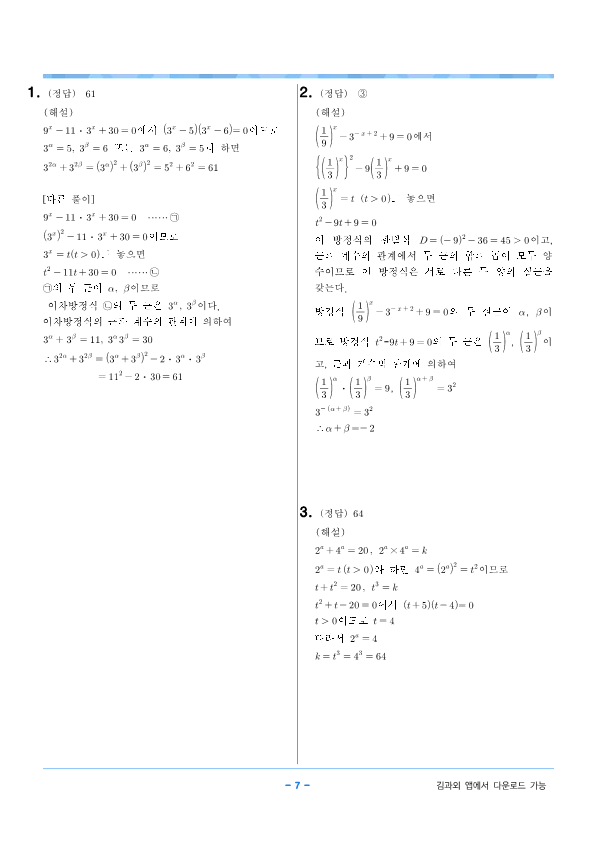 1. (정답) 61
(해설)
9^x − 11 · 3^x + 30 = 0에서 (3^x − 5)(3^x − 6) = 0이므로
3^α = 5, 3^β = 6 또는 3^α = 6, 3^β = 5라 하면
3^{2α} + 3^{2β} = (3^α)^2 + (3^β)^2 = 5^2 + 6^2 = 61
[다른 풀이]
9^x − 11 · 3^x + 30 = 0 ⋯⋯ ㉠
(3^x)^2 − 11 · 3^x + 30 = 0이므로
3^x = t(t > 0)로 놓으면
t^2 − 11t + 30 = 0 ⋯⋯ ㉡
㉠의 두 근이 α, β이므로
이차방정식 ㉡의 두 근은 3^α, 3^β이다.
이차방정식의 근과 계수의 관계에 의하여
3^α + 3^β = 11, 3^α 3^β = 30
∴ 3^{2α} + 3^{2β} = (3^α + 3^β)^2 − 2 · 3^α · 3^β
= 11^2 − 2 · 30 = 61
2. (정답) ③
(해설)
(1/9)^x − 3^{−x+2} + 9 = 0에서
{(1/3)^x}^2 − 9(1/3)^x + 9 = 0
(1/3)^x = t (t > 0)로 놓으면
t^2 − 9t + 9 = 0
이 방정식의 판별식 D = (−9)^2 − 36 = 45 > 0이고,
근과 계수의 관계에서 두 근의 합과 곱이 모두 양
수이므로 이 방정식은 서로 다른 두 양의 실근을
갖는다.
방정식 (1/9)^x − 3^{−x+2} + 9 = 0의 두 실근이 α, β이
므로 방정식 t^2−9t + 9 = 0의 두 근은 (1/3)^α, (1/3)^β이
고, 근과 계수의 관계에 의하여
(1/3)^α · (1/3)^β = 9, (1/3)^{α+β} = 3^2
3^{−(α+β)} = 3^2
∴ α + β = −2
3. (정답) 64
(해설)
2^a + 4^a = 20, 2^a × 4^a = k
2^a = t (t > 0)라 하면 4^a = (2^a)^2 = t^2이므로
t + t^2 = 20, t^3 = k
t^2 + t − 20 = 0에서 (t + 5)(t − 4) = 0
t > 0이므로 t = 4
따라서 2^a = 4
k = t^3 = 4^3 = 64
− 7 −
김과외 앱에서 다운로드 가능